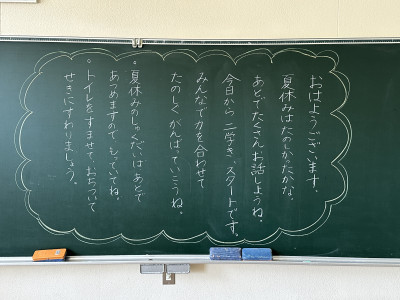 おはようございます。
夏休みはたのしかったかな。
あとでたくさんお話ししようね。
今日から二学き、スタートです。
みんなで力を合わせて
たのしくがんばっていこうね。
・夏休みのしゅくだいはあとで
あつめますので、もっていてね。
・トイレをすませて、おちついて
せきにすわりましょう。